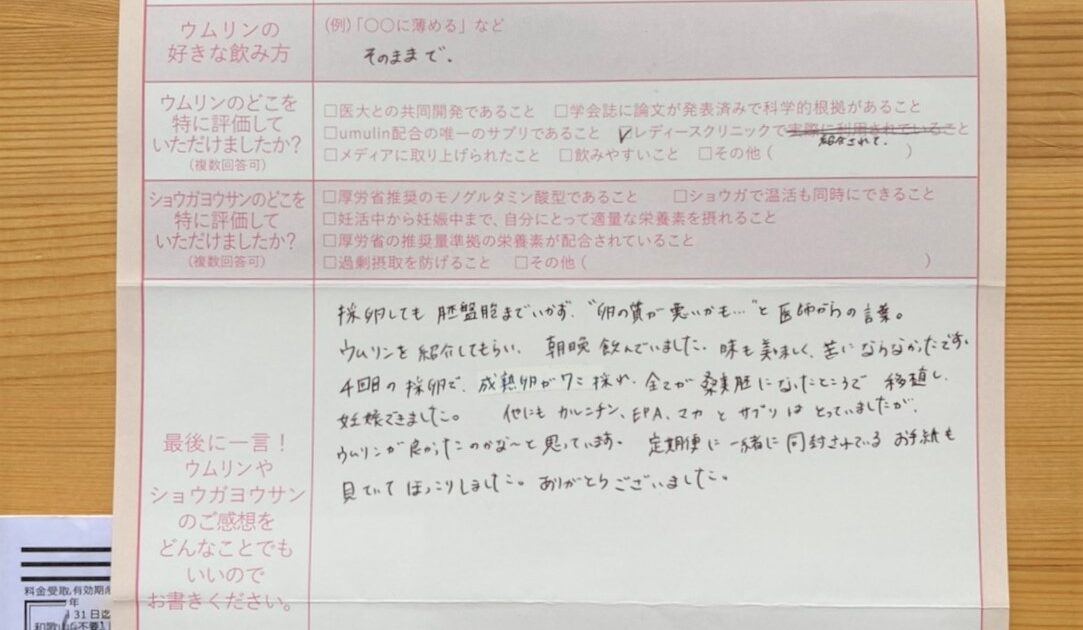 ウムリンの
好きな飲み方
(例)「〇〇に薄める」など
そのままで。
ウムリンのどこを
特に評価して
いただけましたか?
(複数回答可)
□医大との共同開発であること □学会誌に論文が発表済みで科学的根拠があること
□umulin配合の唯一のサプリであること ✓レディースクリニックで実際に利用されていること
紹介されて。
□メディアに取り上げられたこと □飲みやすいこと □その他( )
ショウガヨウサンのどこを
特に評価して
いただけましたか?
(複数回答可)
□厚労省推奨のモノグルタミン酸型であること □ショウガで温活も同時にできること
□妊活中から妊娠中まで、自分にとって適量な栄養素を摂れること
□厚労省の推奨量準拠の栄養素が配合されていること
□過剰摂取を防げること □その他( )
最後に一言!
ウムリンや
ショウガヨウサン
のご感想を
どんなことでも
いいので
お書きください。
採卵しても 胚盤胞までいかず、“卵の質が悪いかも…”と 医師からの言葉。
ウムリンを 紹介してもらい、 朝晩 飲んでいました。味も美味しく、苦にならなかったです。
4回目の採卵で、成熟卵が7コ採れ、全てが桑実胚になったところで 移植し、
妊娠できました。 他にも カルニチン、EPA、マカ と サプリは とっていましたが、
ウムリンが良かったのかな〜と思っています。 定期便に 一緒に 同封されている お手紙も
見ていて ほっこりしました。ありがとうございました。
料金受取
有効期
年
31日迄
不要